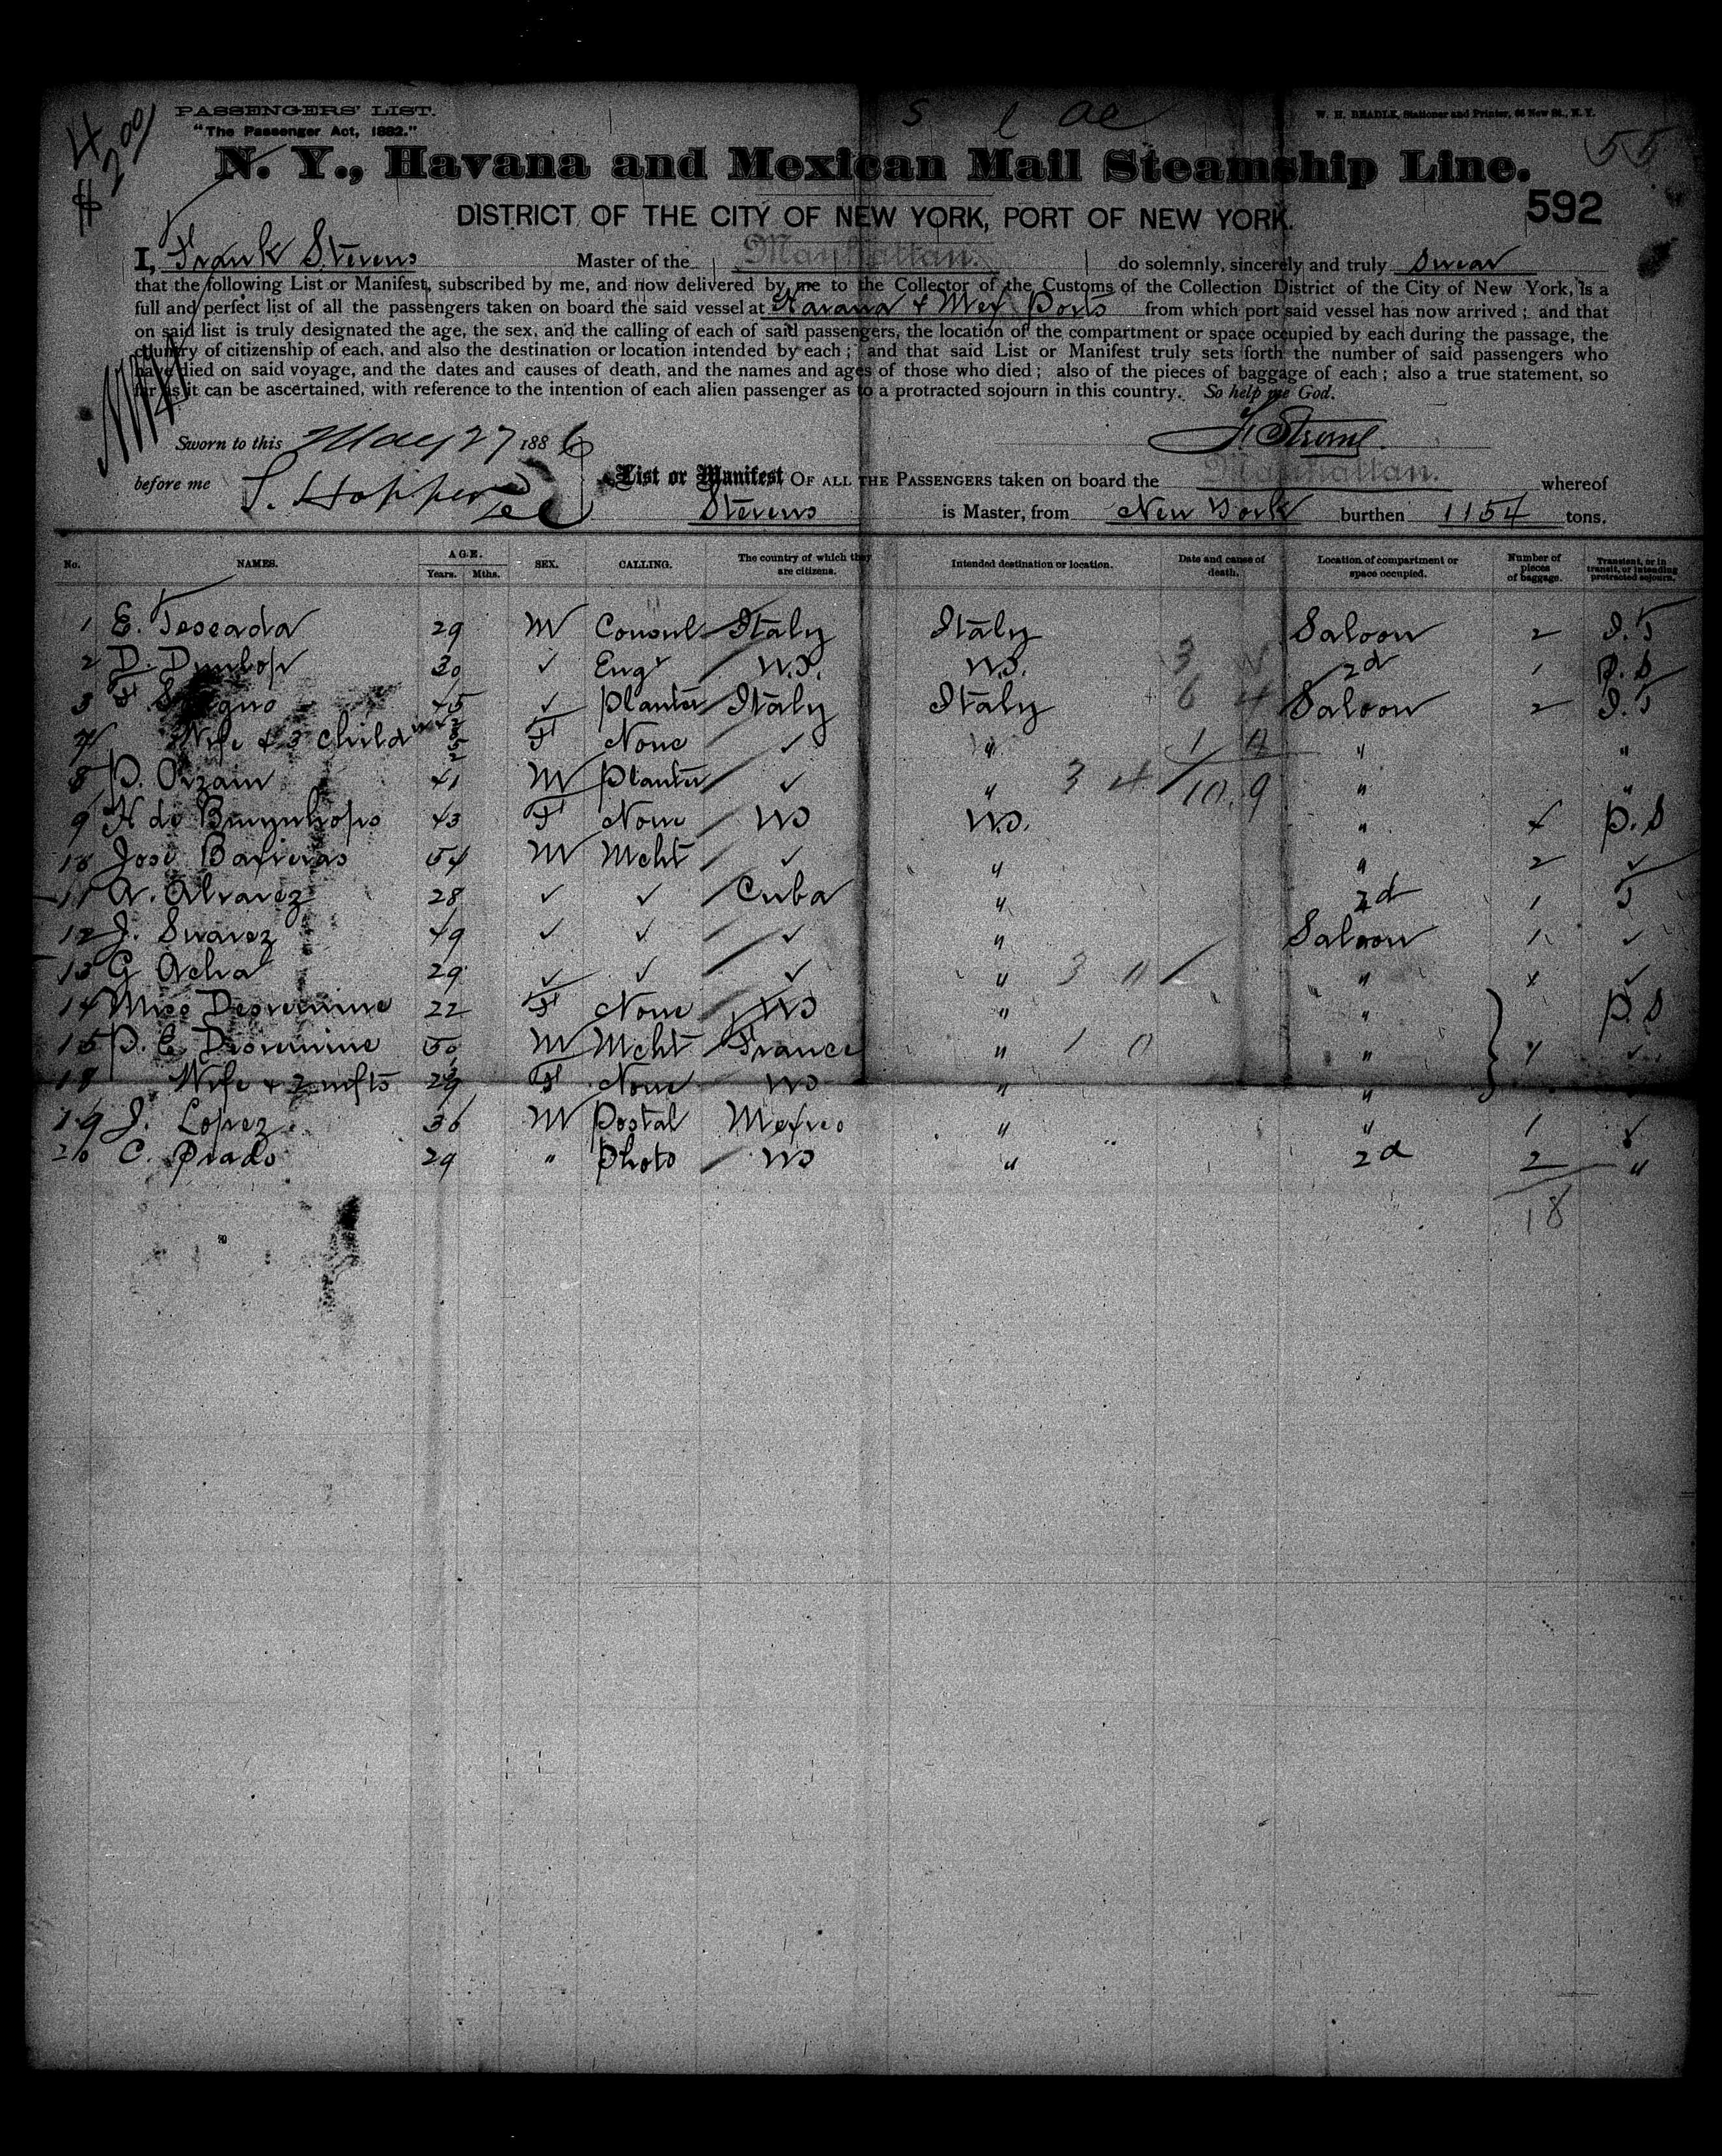 4
$2.00
PASSENGERS' LIST.
"The Passenger Act, 1882."
W. H. BEADLE, Stationer and Printer, 66 New St., N. Y.
55
N. Y., Havana and Mexican Mail Steamship Line.
DISTRICT OF THE CITY OF NEW YORK, PORT OF NEW YORK.
592
I, Frank Stevens Master of the Manhattan. do solemnly, sincerely and truly Swear
that the following List or Manifest, subscribed by me, and now delivered by me to the Collector of the Customs of the Collection District of the City of New York, is a
full and perfect list of all the passengers taken on board the said vessel at Havana & Mex Ports from which port said vessel has now arrived; and that
on said list is truly designated the age, the sex, and the calling of each of said passengers, the location of the compartment or space occupied by each during the passage, the
country of citizenship of each, and also the destination or location intended by each; and that said List or Manifest truly sets forth the number of said passengers who
have died on said voyage, and the dates and causes of death, and the names and ages of those who died; also of the pieces of baggage of each; also a true statement, so
far as it can be ascertained, with reference to the intention of each alien passenger as to a protracted sojourn in this country. So help me God.
Sworn to this May 27 1886
before me
List or Manifest OF ALL THE PASSENGERS taken on board the Manhattan. whereof
Stevens is Master, from New York burthen 1154 tons.
No. NAMES. AGE. Years. Mths. SEX. CALLING. The country of which they are citizens. Intended destination or location. Date and cause of death. Location of compartment or space occupied. Number of pieces of baggage. Transient, or in transit, or intending protracted sojourn.
1 E. Toseada 29 M Consul Italy Italy Saloon 2 I.T
2 D. Dunlop 30 ✓ Engr U.S. U.S. 2d 1 P.S
3 F 45 ✓ Planter Italy Italy Saloon 2 I.T
Wife & 3 child F None ✓ " " "
8 P. Orzain 41 M Planter ✓ " " "
9 H de 43 F None US U.S. " P.S
10 Jose Barreras 54 M Mcht ✓ " " 2 ✓
11 A. Alvarez 28 ✓ ✓ Cuba " 2d 1 T
12 J. Suarez 49 ✓ ✓ ✓ " Saloon 1 ✓
13 G Acha 29 ✓ ✓ ✓ " " ✓
14 Miss 22 F None US " " P.S
15 P. E. 50 M Mcht France " "
18 Wife & 2 infts 29 F None US " "
19 J. Lopez 36 M Postal Mexico " " 1 ✓
20 C. Prado 29 " Photo US " 2d 2 "
18